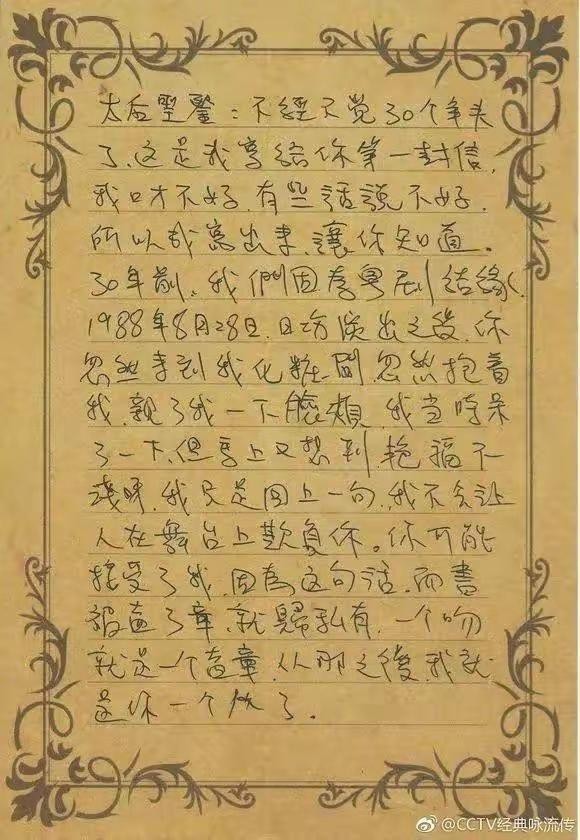 太后聖鑒：不經不覺30个年头
了，这是我寫給你第一封信，
我口才不好，有些話說不好，
所以我寫出來，讓你知道。
30年前，我們因為粵劇結緣，
1988年8月28日，日場演出之後，你
忽然來到我化粧間，忽然抱着
我，親了我一下臉頰，我當時呆
了一下，但馬上又想到，艷福不
淺呀，我只是回上一句，我不会让
人在舞台上欺負你。你可能
接受了我，因為这句話，而書
被蓋了章，就歸私有，一个吻
就是一个蓋章，从那之後，我就
是你一个的了。
@CCTV经典咏流传